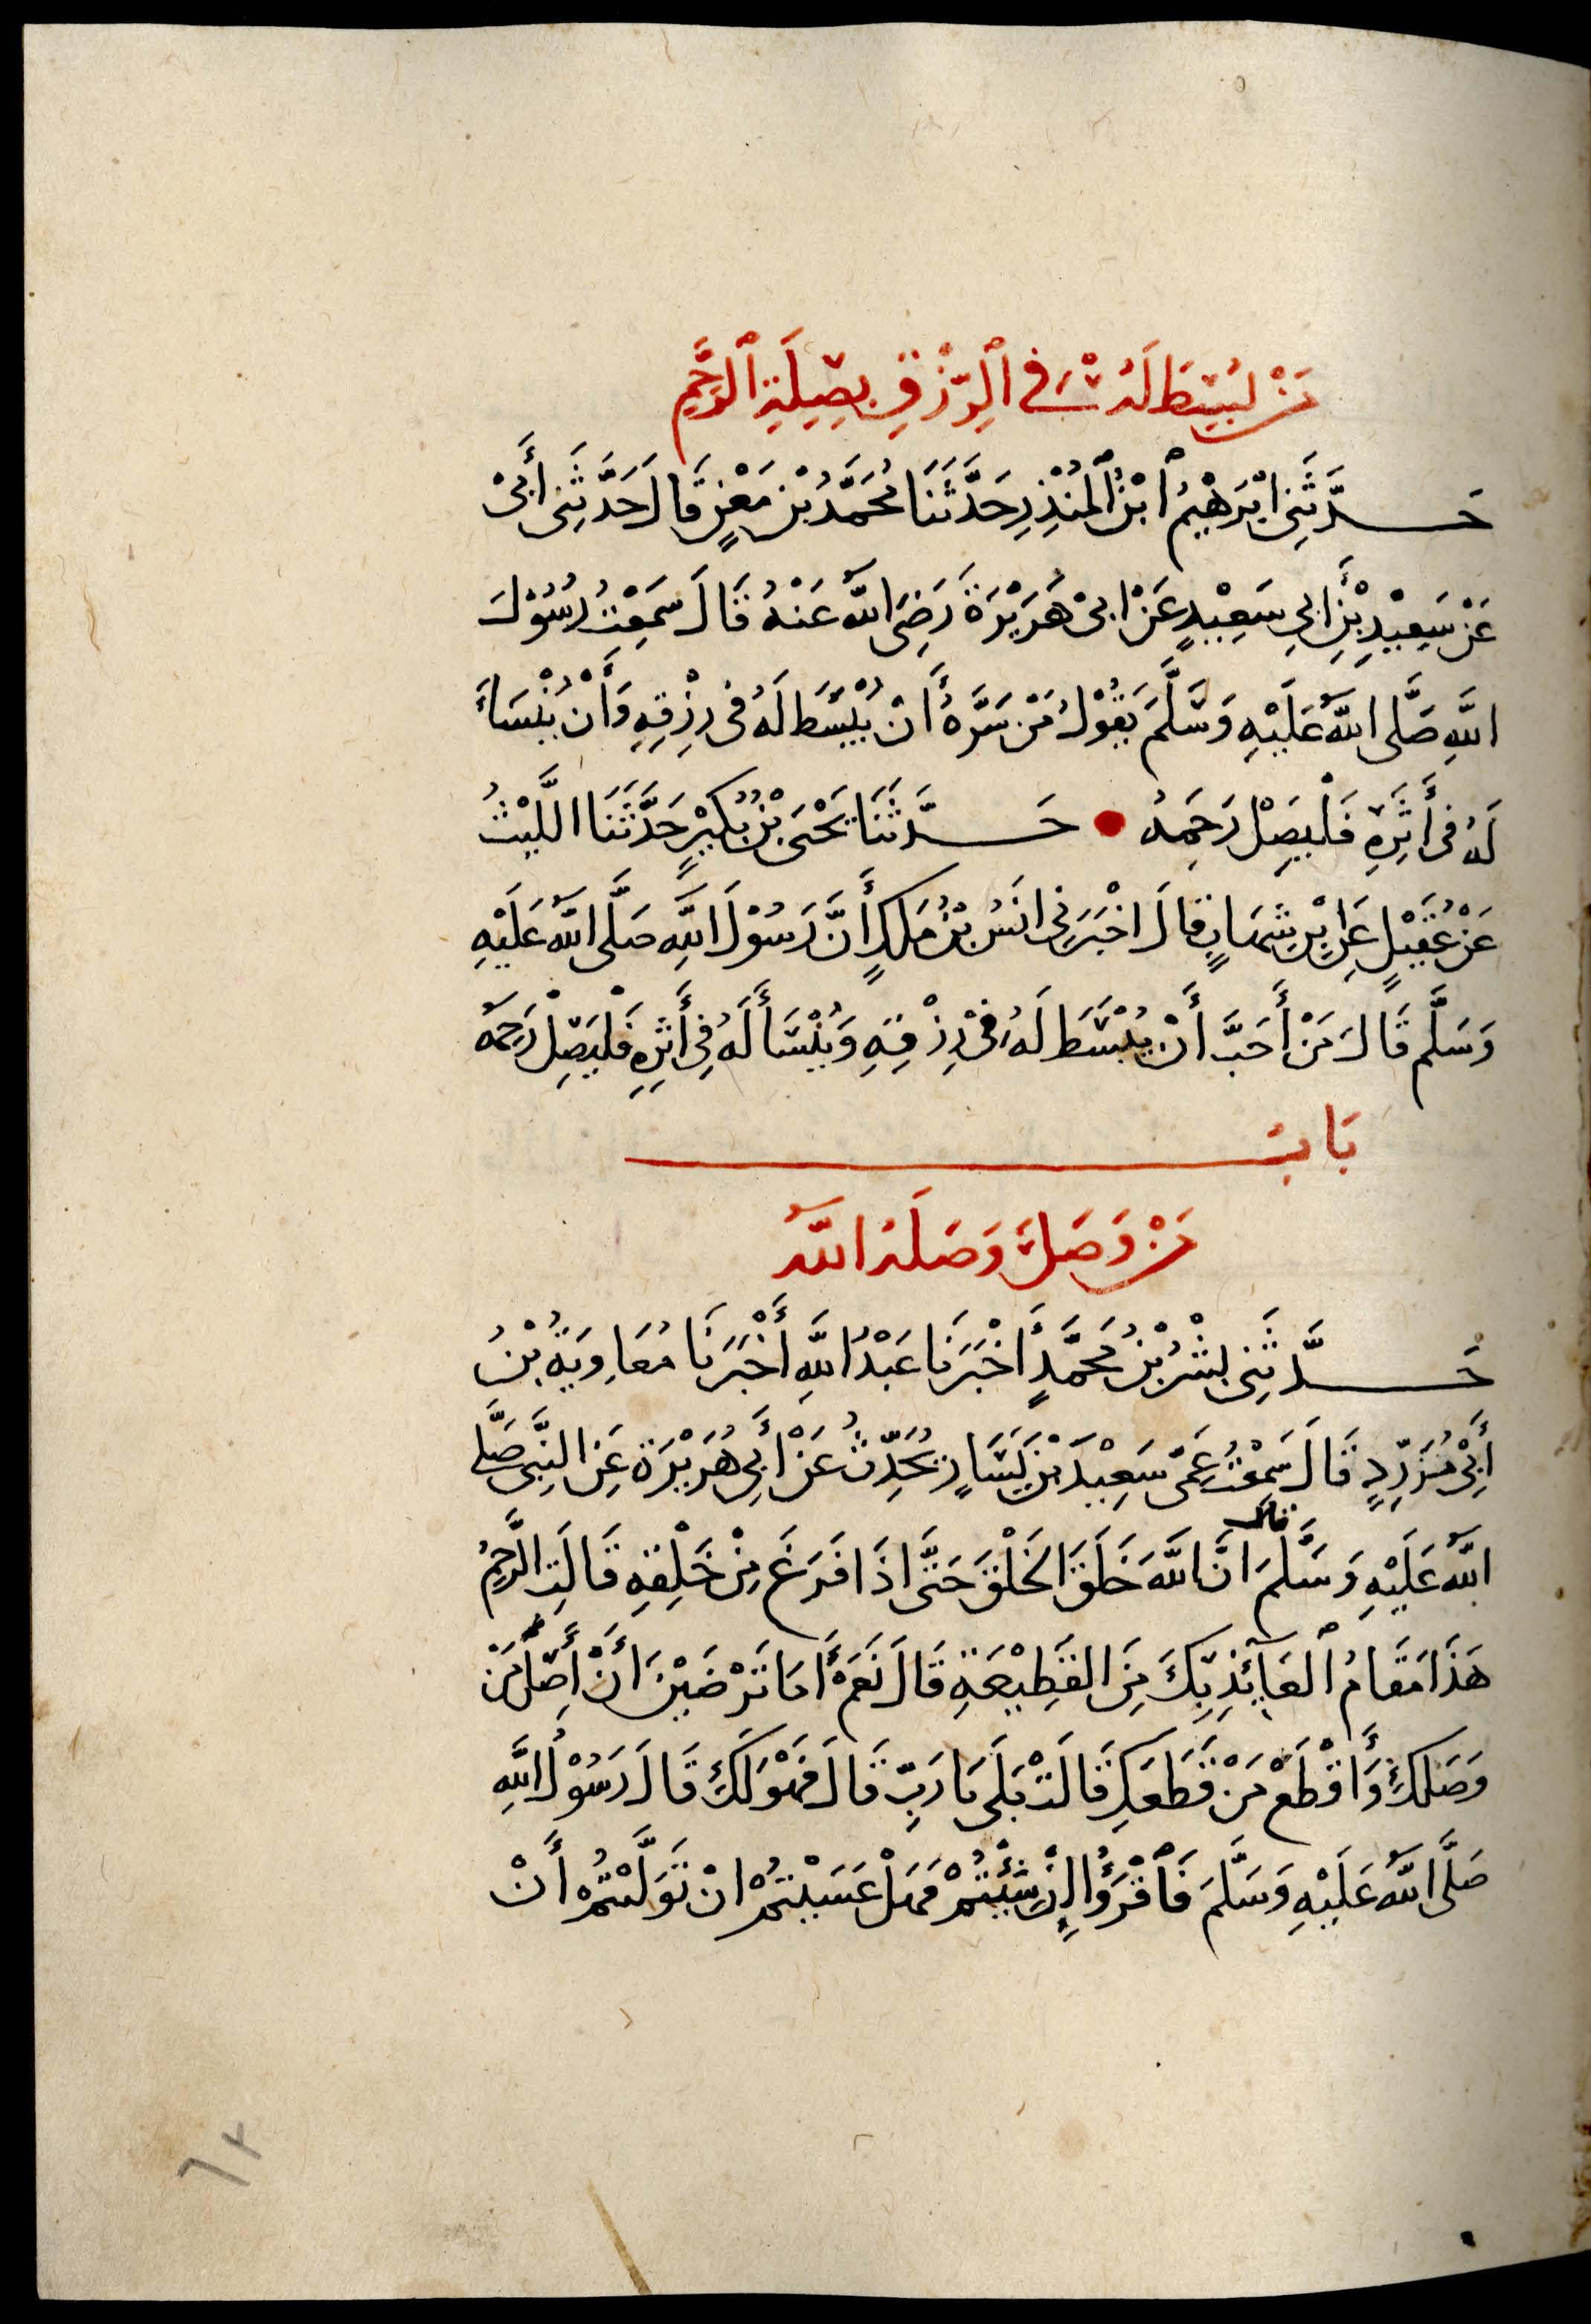 مَنْ بُسِطَ لَهُ فِي ٱلرِّزْقِ بِصِلَةِ ٱلرَّحِمِ
حَدَّثَنِى ابْرَهِيْمُ ٱبْنُ ٱلْمُنْذِرِ حَدَّثَنَا مُحَمَّدُ بْنُ مَعْنٍ قَالَ حَدَّثَنِى أَبِىْ
عَنْ سَعِيْدِ بْنِ ابِى سَعِيْدٍ عَنْ ابِىْ هُرَيْرَةَ رَضِىَ اللَّهُ عَنْهُ قَالَ سَمِعْتُ رَسُوْلَ
اللَّهِ صَلَّى اللَّهُ عَلَيْهِ وَسَلَّمَ يَقُوْلُ مَنْ سَرَّهُ أَنْ يُبْسَطَ لَهُ فِى رِزْقِهِ وَأَنْ يُنْسَأَ
لَهُ فِى أَثَرِهِ فَلْيَصِلْ رَحِمَهُ • حَدَّثَنَا يَحْيَى بْنُ بُكَيْرٍ حَدَّثَنَا اللَّيْثُ
عَنْ عُقَيْلٍ عَنِ ابْنِ شِهَابٍ قَالَ اخْبَرَنِى انَسُ بْنُ مٰلِكٍ أَنَّ رَسُوْلَ اللَّهِ صَلَّى اللَّهُ عَلَيْهِ
وَسَلَّمَ قَالَ مَنْ أَحَبَّ أَنْ يُبْسَطَ لَهُ فِىْ رِزْقِهِ وَيُنْسَأَ لَهُ فِى أَثَرِهِ فَلْيَصِلْ رَحِمَهُ
بَابُ
مَنْ وَصَلَ وَصَلَهُ اللَّهُ
حَدَّثَنِى بِشْرُ بْنُ مُحَمَّدٍ أَخْبَرَنَا عَبْدُ اللَّهِ أَخْبَرَنَا مُعَاوِيَةُ بْنُ
أَبِىْ مُزَرِّدٍ قَالَ سَمِعْتُ عَمِّى سَعِيْدَ بْنَ يَسَارٍ يُحَدِّثُ عَنْ أَبِى هُرَيْرَةَ عَنِ النَّبِىِّ صَلَّى
اللَّهُ عَلَيْهِ وَسَلَّمَ قال انَّ اللَّهَ خَلَقَ الخَلْقَ حَتَّى اذَا فَرَغَ مِنْ خَلْقِهِ قَالَتِ الرَّحِمُ
هَذَا مَقَامُ ٱلعَآئِذِ بِكَ مِنَ القَطِيْعَةِ قَالَ نَعَمْ أَمَا تَرْضَيْنَ أَنْ أَصِلَ مَنْ
وَصَلَكِ وَأَقْطَعَ مَنْ قَطَعَكِ قَالَتْ بَلَى يَا رَبِّ قَالَ فَهُوَ لَكِ قَالَ رَسُوْلُ اللَّهِ
صَلَّى اللَّهُ عَلَيْهِ وَسَلَّمَ فَٱقْرَؤُا إِنْ شِئْتُمْ فَهَلْ عَسَيْتُمْ انْ تَوَلَّيْتُمْ أَنْ
٦٢